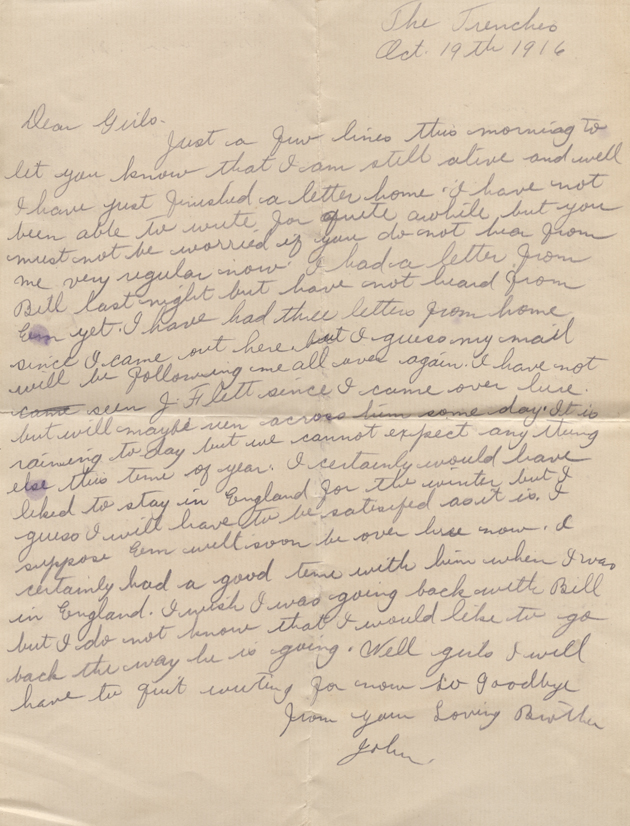 The Trenches
Oct. 19th 1916
Dear Girls.
Just a few lines this morning to
let you know that I am still alive and well
I have just finished a letter home. I have not
been able to write for quite awhile but you
must not be worried if you do not hear from
me very regular now. I had a letter from
Bill last night but have not heard from
Ern yet. I have had three letters from home
since I came out here but I guess my mail
will be following me all over again. I have not
came seen J. Flett since I came over here.
but will maybe run across him some day. It is
raining to day but we cannot expect any thing
else this time of year. I certainly would have
liked to stay in England for the winter but I
guess I will have to be satisifed as it is. I
suppose Ern will soon be over here now. I
certainly had a good time with him when I was
in England. I wish I was going back with Bill
but I do not know that I would like to go
back the way he is going. Well girls I will
have to quit writing for now so Goodbye
From your Loving Brother
John.